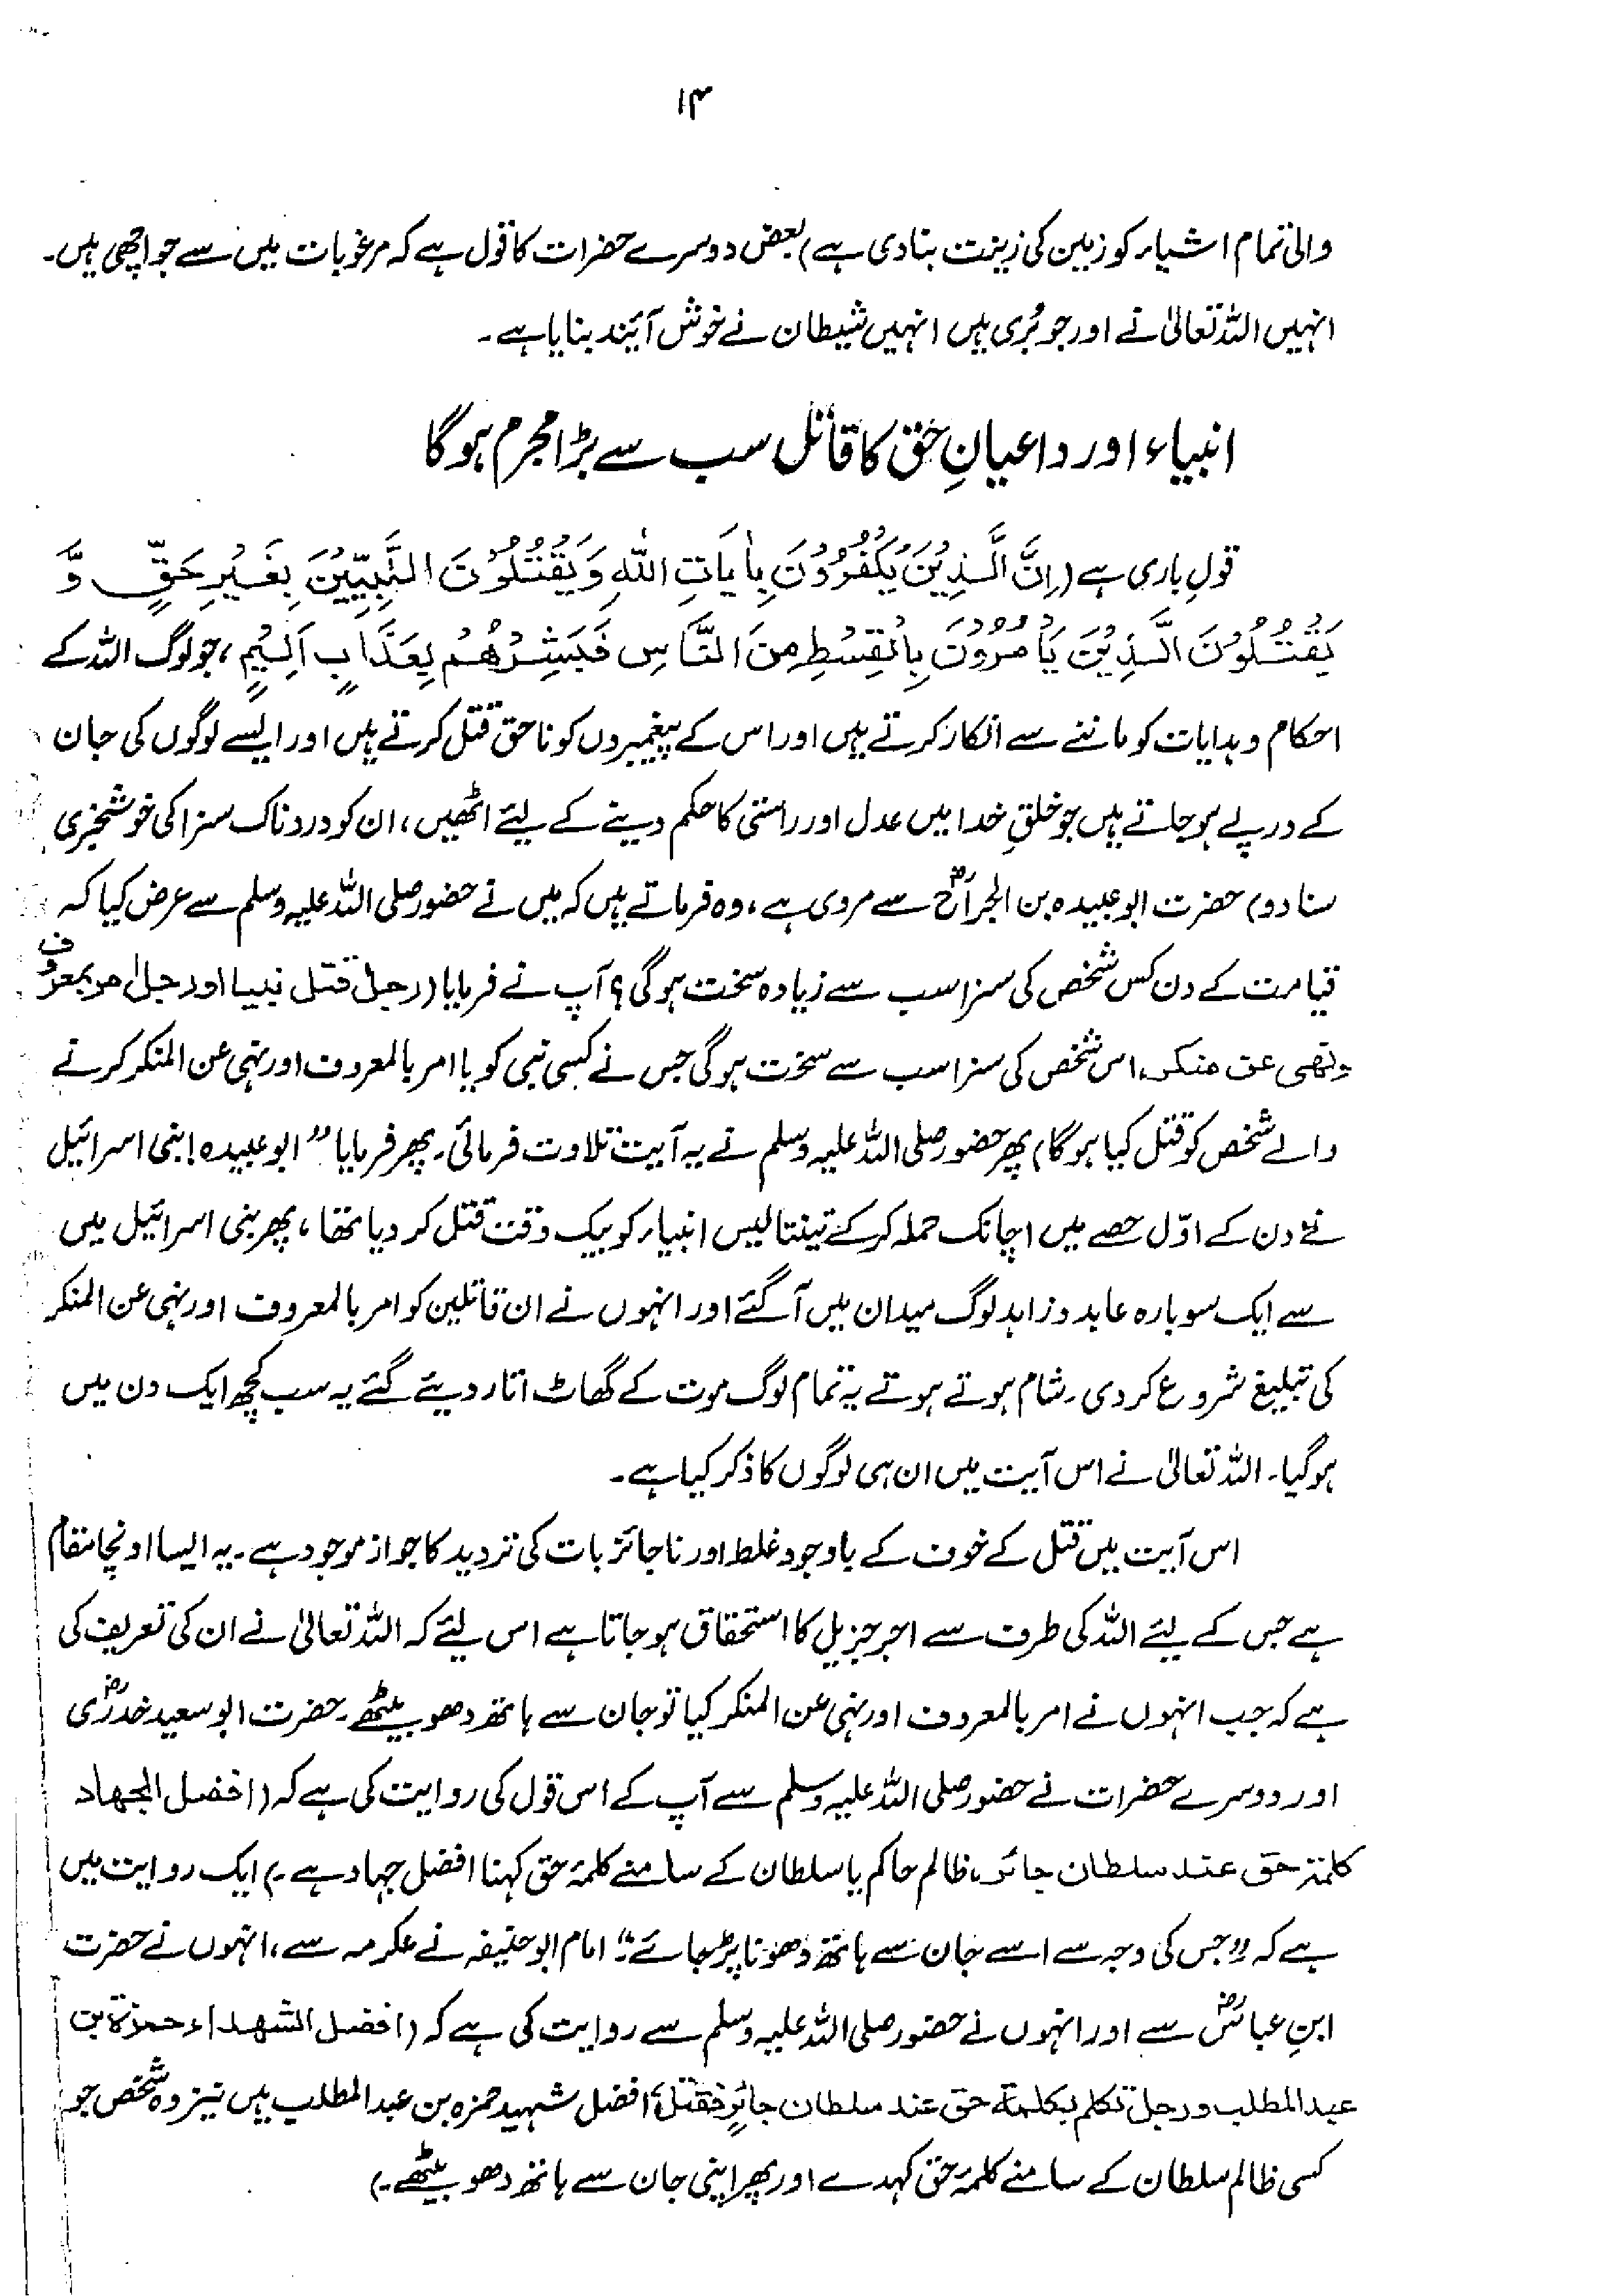 ۱۴
والی تمام اشیاء کو زمین کی زینت بنا دی ہے) بعض دوسرے حضرات کا قول ہے کہ مرغوبات میں سے جو اچھی ہیں۔
انہیں اللہ تعالیٰ نے اور جو بُری ہیں انہیں شیطان نے خوش آئند بنایا ہے۔
انبیاء اور داعیانِ حق کا قاتل سب سے بڑا مجرم ہوگا
قولِ باری ہے (اِنَّ الَّذِیْنَ یَکْفُرُوْنَ بِاٰیَاتِ اللّٰہِ وَیَقْتُلُوْنَ النَّبِیِّیْنَ بِغَیْرِ حَقٍّ وَّ
یَقْتُلُوْنَ الَّذِیْنَ یَاْمُرُوْنَ بِالْقِسْطِ مِنَ النَّاسِ فَبَشِّرْهُمْ بِعَذَابٍ اَلِیْمٍ، جو لوگ اللہ کے
احکام و ہدایات کو ماننے سے انکار کرتے ہیں اور اس کے پیغمبروں کو ناحق قتل کرتے ہیں اور ایسے لوگوں کی جان
کے درپے ہو جاتے ہیں جو خلقِ خدا میں عدل اور راستی کا حکم دینے کے لیئے اٹھیں، ان کو دردناک سزا کی خوشخبری
سنا دو) حضرت ابوعبیدہ بن الجراحؓ سے مروی ہے، وہ فرماتے ہیں کہ میں نے حضور صلی اللہ علیہ وسلم سے عرض کیا کہ
قیامت کے دن کس شخص کی سزا سب سے زیادہ سخت ہوگی؟ آپ نے فرمایا (رجل قتل نبیا اور رجلا امر بمعروف
ونھی عن منکر، اس شخص کی سزا سب سے سخت ہوگی جس نے کسی نبی کو یا امر بالمعروف اور نہی عن المنکر کرنے
والے شخص کو قتل کیا ہوگا) پھر حضور صلی اللہ علیہ وسلم نے یہ آیت تلاوت فرمائی۔ پھر فرمایا "ابوعبیدہ! بنی اسرائیل
نے دن کے اوّل حصے میں اچانک حملہ کرکے تینتالیس انبیاء کو بیک وقت قتل کر دیا تھا، پھر بنی اسرائیل میں
سے ایک سو بارہ عابد و زاہد لوگ میدان میں آگئے اور انہوں نے ان قاتلین کو امر بالمعروف اور نہی عن المنکر
کی تبلیغ شروع کردی۔ شام ہوتے ہوتے یہ تمام لوگ موت کے گھاٹ اتار دیئے گئے یہ سب کچھ ایک دن میں
ہوگیا۔ اللہ تعالیٰ نے اس آیت میں ان ہی لوگوں کا ذکر کیا ہے۔
اس آیت میں قتل کے خوف کے باوجود غلط اور ناجائز بات کی تردید کا جواز موجود ہے۔ یہ ایسا اونچا مقام
ہے جس کے لیئے اللہ کی طرف سے اجر جزیل کا استحقاق ہو جاتا ہے اس لیئے کہ اللہ تعالیٰ نے ان کی تعریف کی
ہے کہ جب انہوں نے امر بالمعروف اور نہی عن المنکر کیا تو جان سے ہاتھ دھو بیٹھے۔ حضرت ابوسعید خدریؓ
اور دوسرے حضرات نے حضور صلی اللہ علیہ وسلم سے آپ کے اس قول کی روایت کی ہے کہ (افضل الجھاد
کلمۃ حق عند سلطان جائر، ظالم حاکم یا سلطان کے سامنے کلمۂ حق کہنا افضل جہاد ہے۔) ایک روایت میں
ہے کہ "جس کی وجہ سے اسے جان سے ہاتھ دھونا پڑ جائے"۔ امام ابوحنیفہ نے عکرمہ سے، انہوں نے حضرت
ابنِ عباسؓ سے اور انہوں نے حضور صلی اللہ علیہ وسلم سے روایت کی ہے کہ (افضل الشھداء حمزۃ بن
عبد المطلب ورجل تکلم بکلمۃ حق عند سلطان جائرٍ فقتل، افضل شہید حمزہ بن عبدالمطلب ہیں نیز وہ شخص جو
کسی ظالم سلطان کے سامنے کلمۂ حق کہدے اور پھر اپنی جان سے ہاتھ دھو بیٹھے۔)